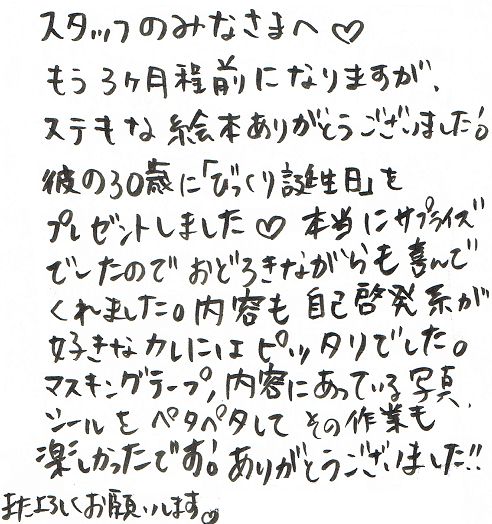 スタッフのみなさまへ♡
もう3ヶ月程前になりますが、
ステキな絵本ありがとうございました！
彼の30歳に「びっくり誕生日」を
プレゼントしました♡ 本当にサプライズ
でしたので おどろきながらも喜んで
くれました。内容も 自己啓発系が
好きなカレにはピッタリでした。
マスキングテープ、内容にあっている写真、
シールを ペタペタして その作業も
楽しかったです！ありがとうございました!!
またよろしくお願いします。